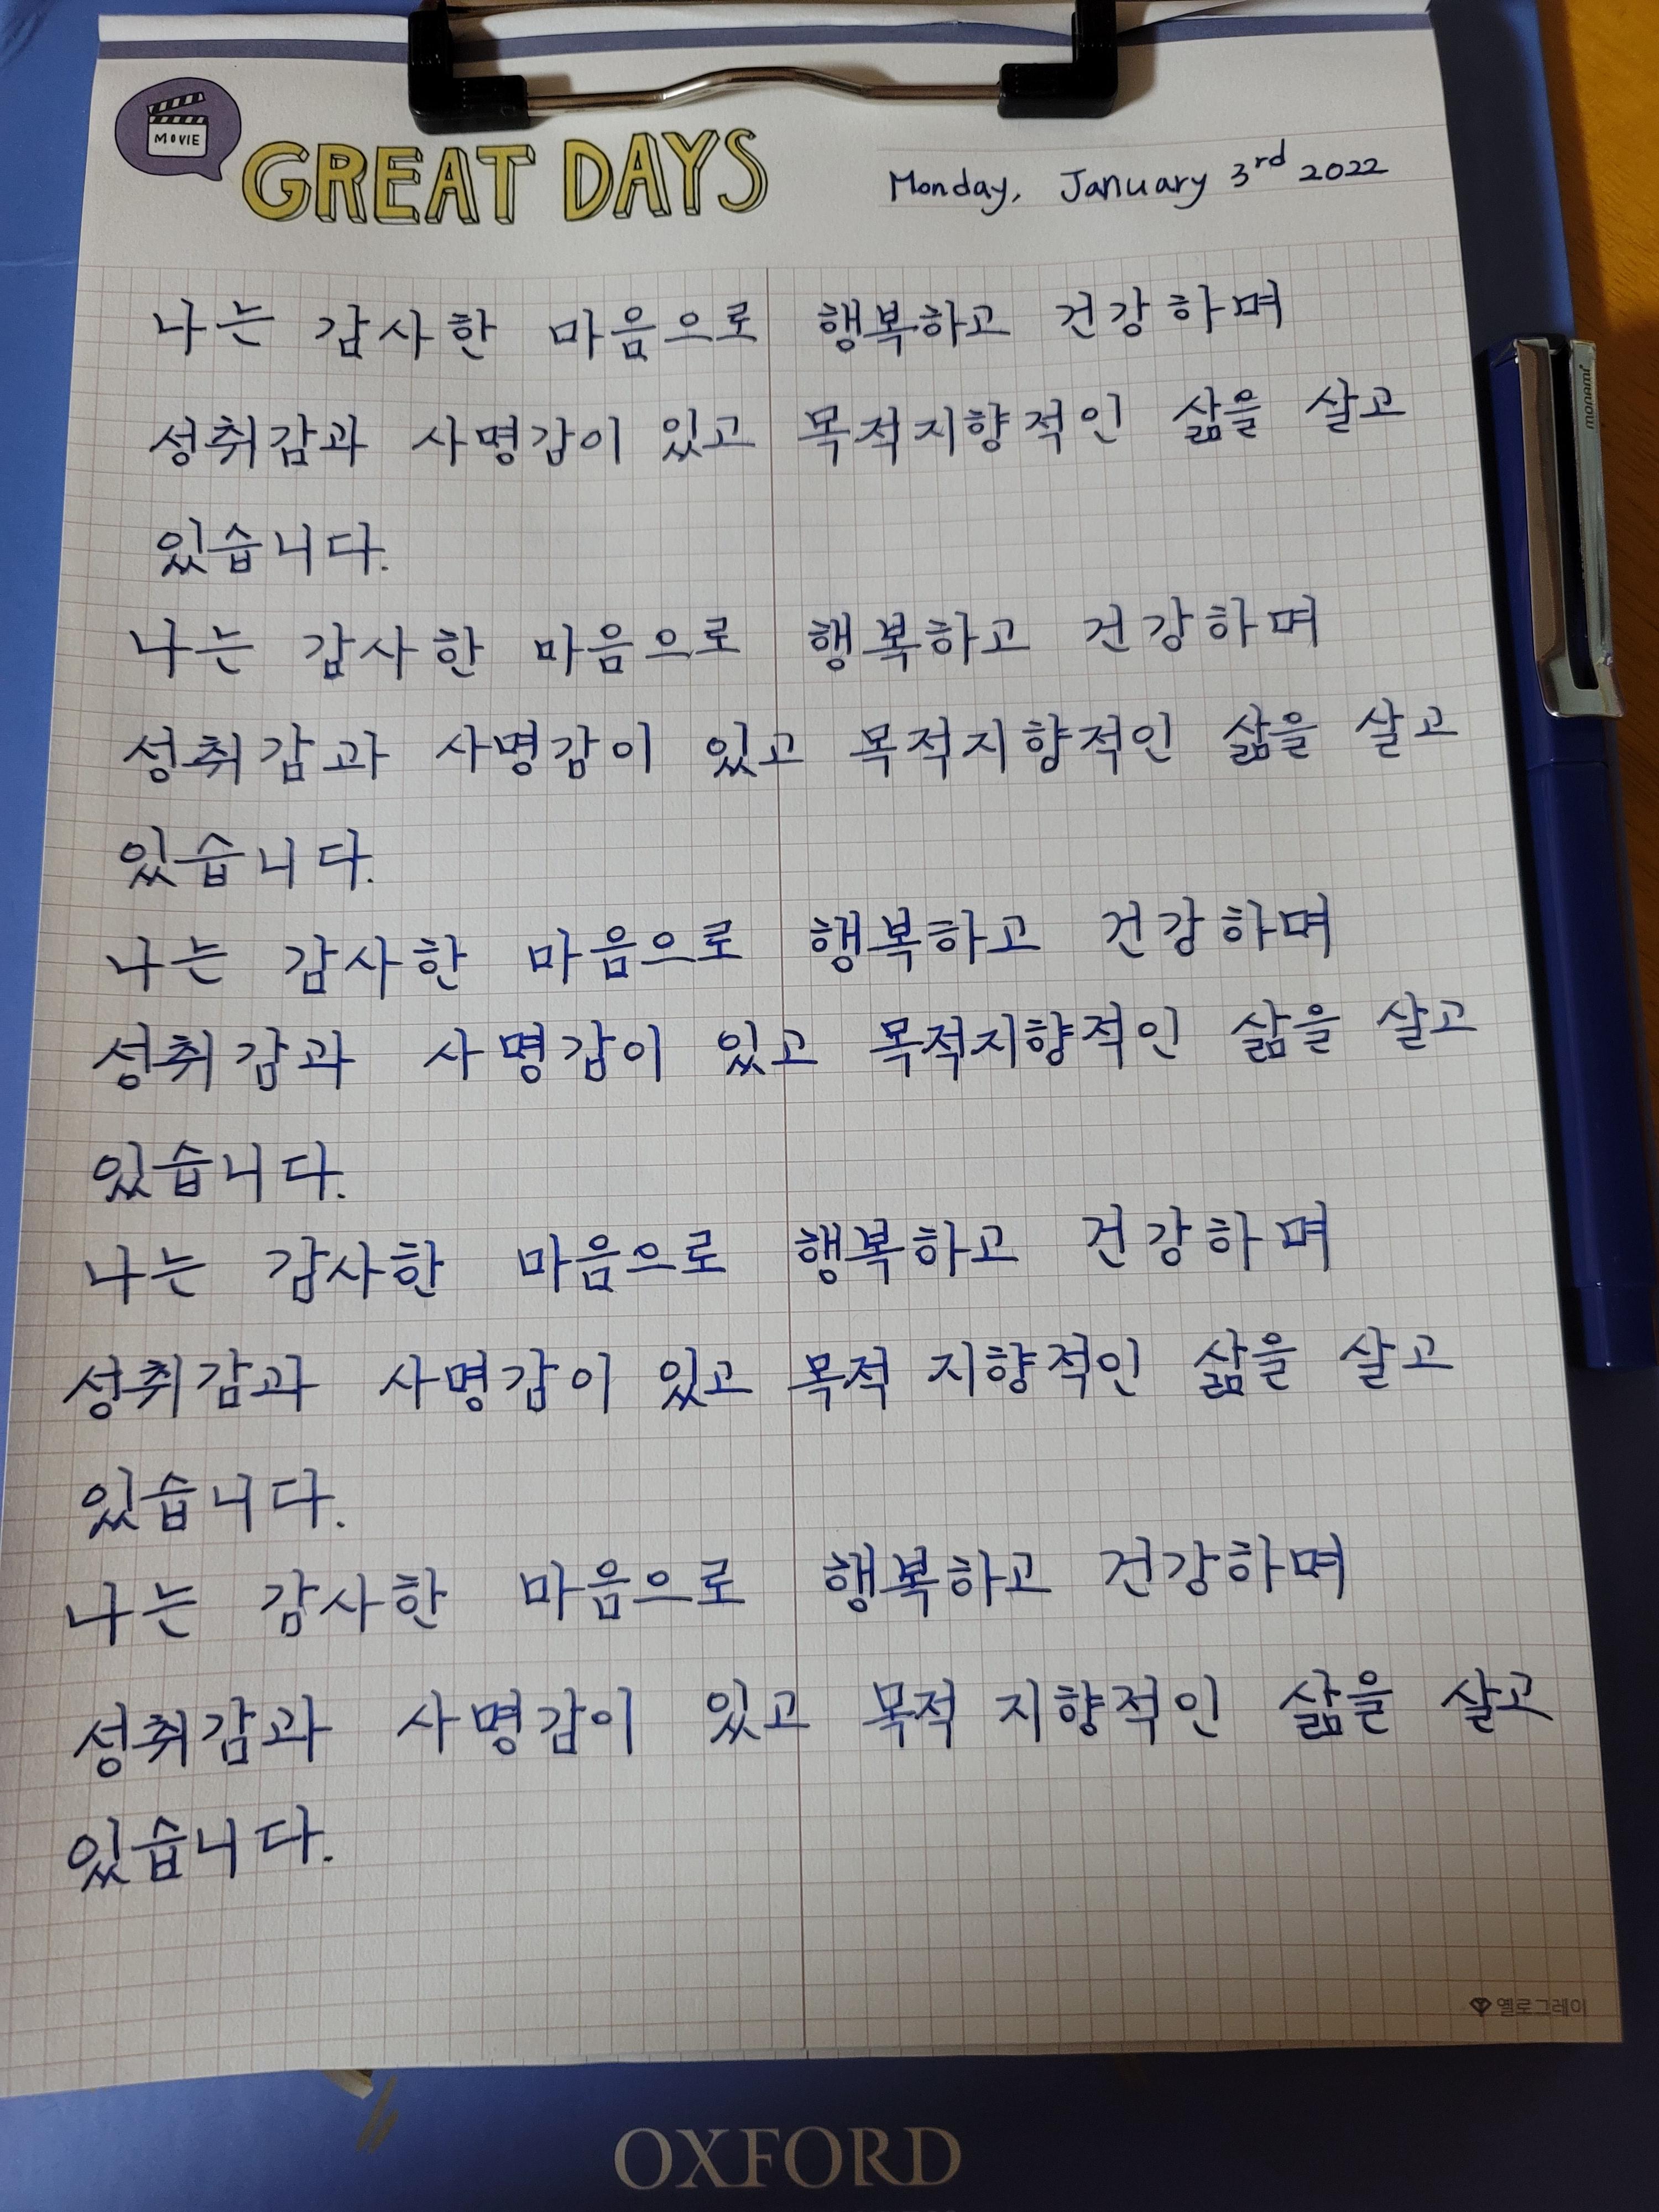 MOVIE
GREAT DAYS
Monday, January 3rd 2022
나는 감사한 마음으로 행복하고 건강하며
성취감과 사명감이 있고 목적지향적인 삶을 살고
있습니다.
나는 감사한 마음으로 행복하고 건강하며
성취감과 사명감이 있고 목적지향적인 삶을 살고
있습니다.
나는 감사한 마음으로 행복하고 건강하며
성취감과 사명감이 있고 목적지향적인 삶을 살고
있습니다.
나는 감사한 마음으로 행복하고 건강하며
성취감과 사명감이 있고 목적 지향적인 삶을 살고
있습니다.
나는 감사한 마음으로 행복하고 건강하며
성취감과 사명감이 있고 목적 지향적인 삶을 살고
있습니다.
옐로그레이
monami
OXFORD